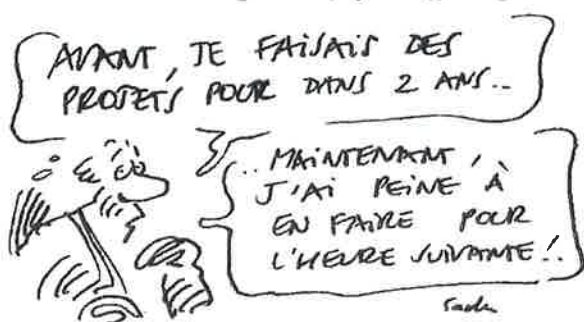 AVANT, JE FAISAIS DES
PROJETS POUR DANS 2 ANS...
...MAINTENANT,
J'AI PEINE À
EN FAIRE POUR
L'HEURE SUIVANTE!..